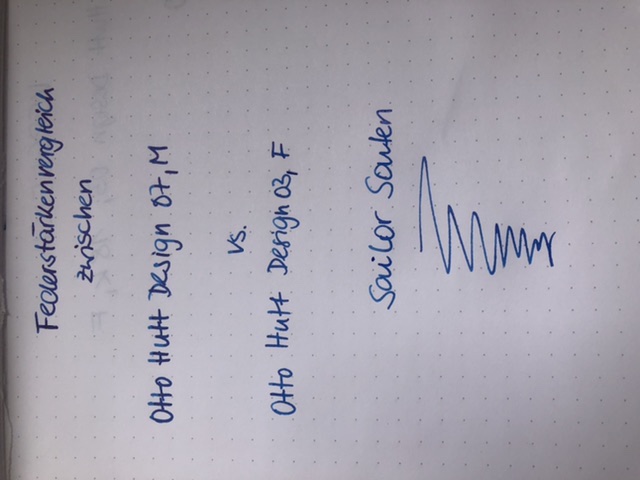 Federstärkenvergleich
zwischen
Otto Hutt Design 07, M
vs.
Otto Hutt Design 03, F
Sailor Souten